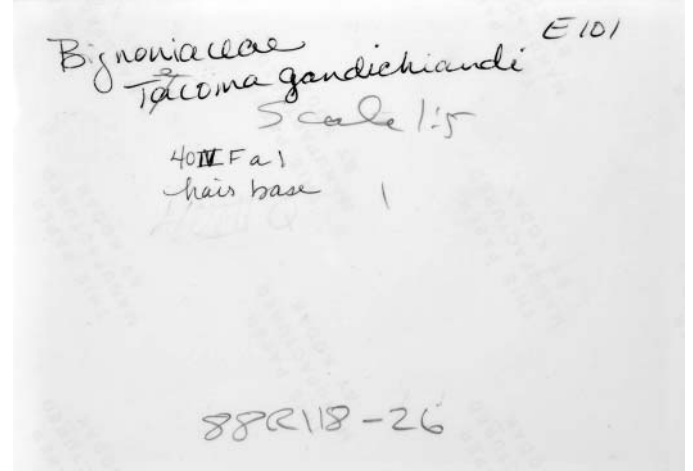 E 101
Bignoniaceae
Tecoma gandichiandi
Scale 1:5
40IVFa1
hair base 1
88R118-26